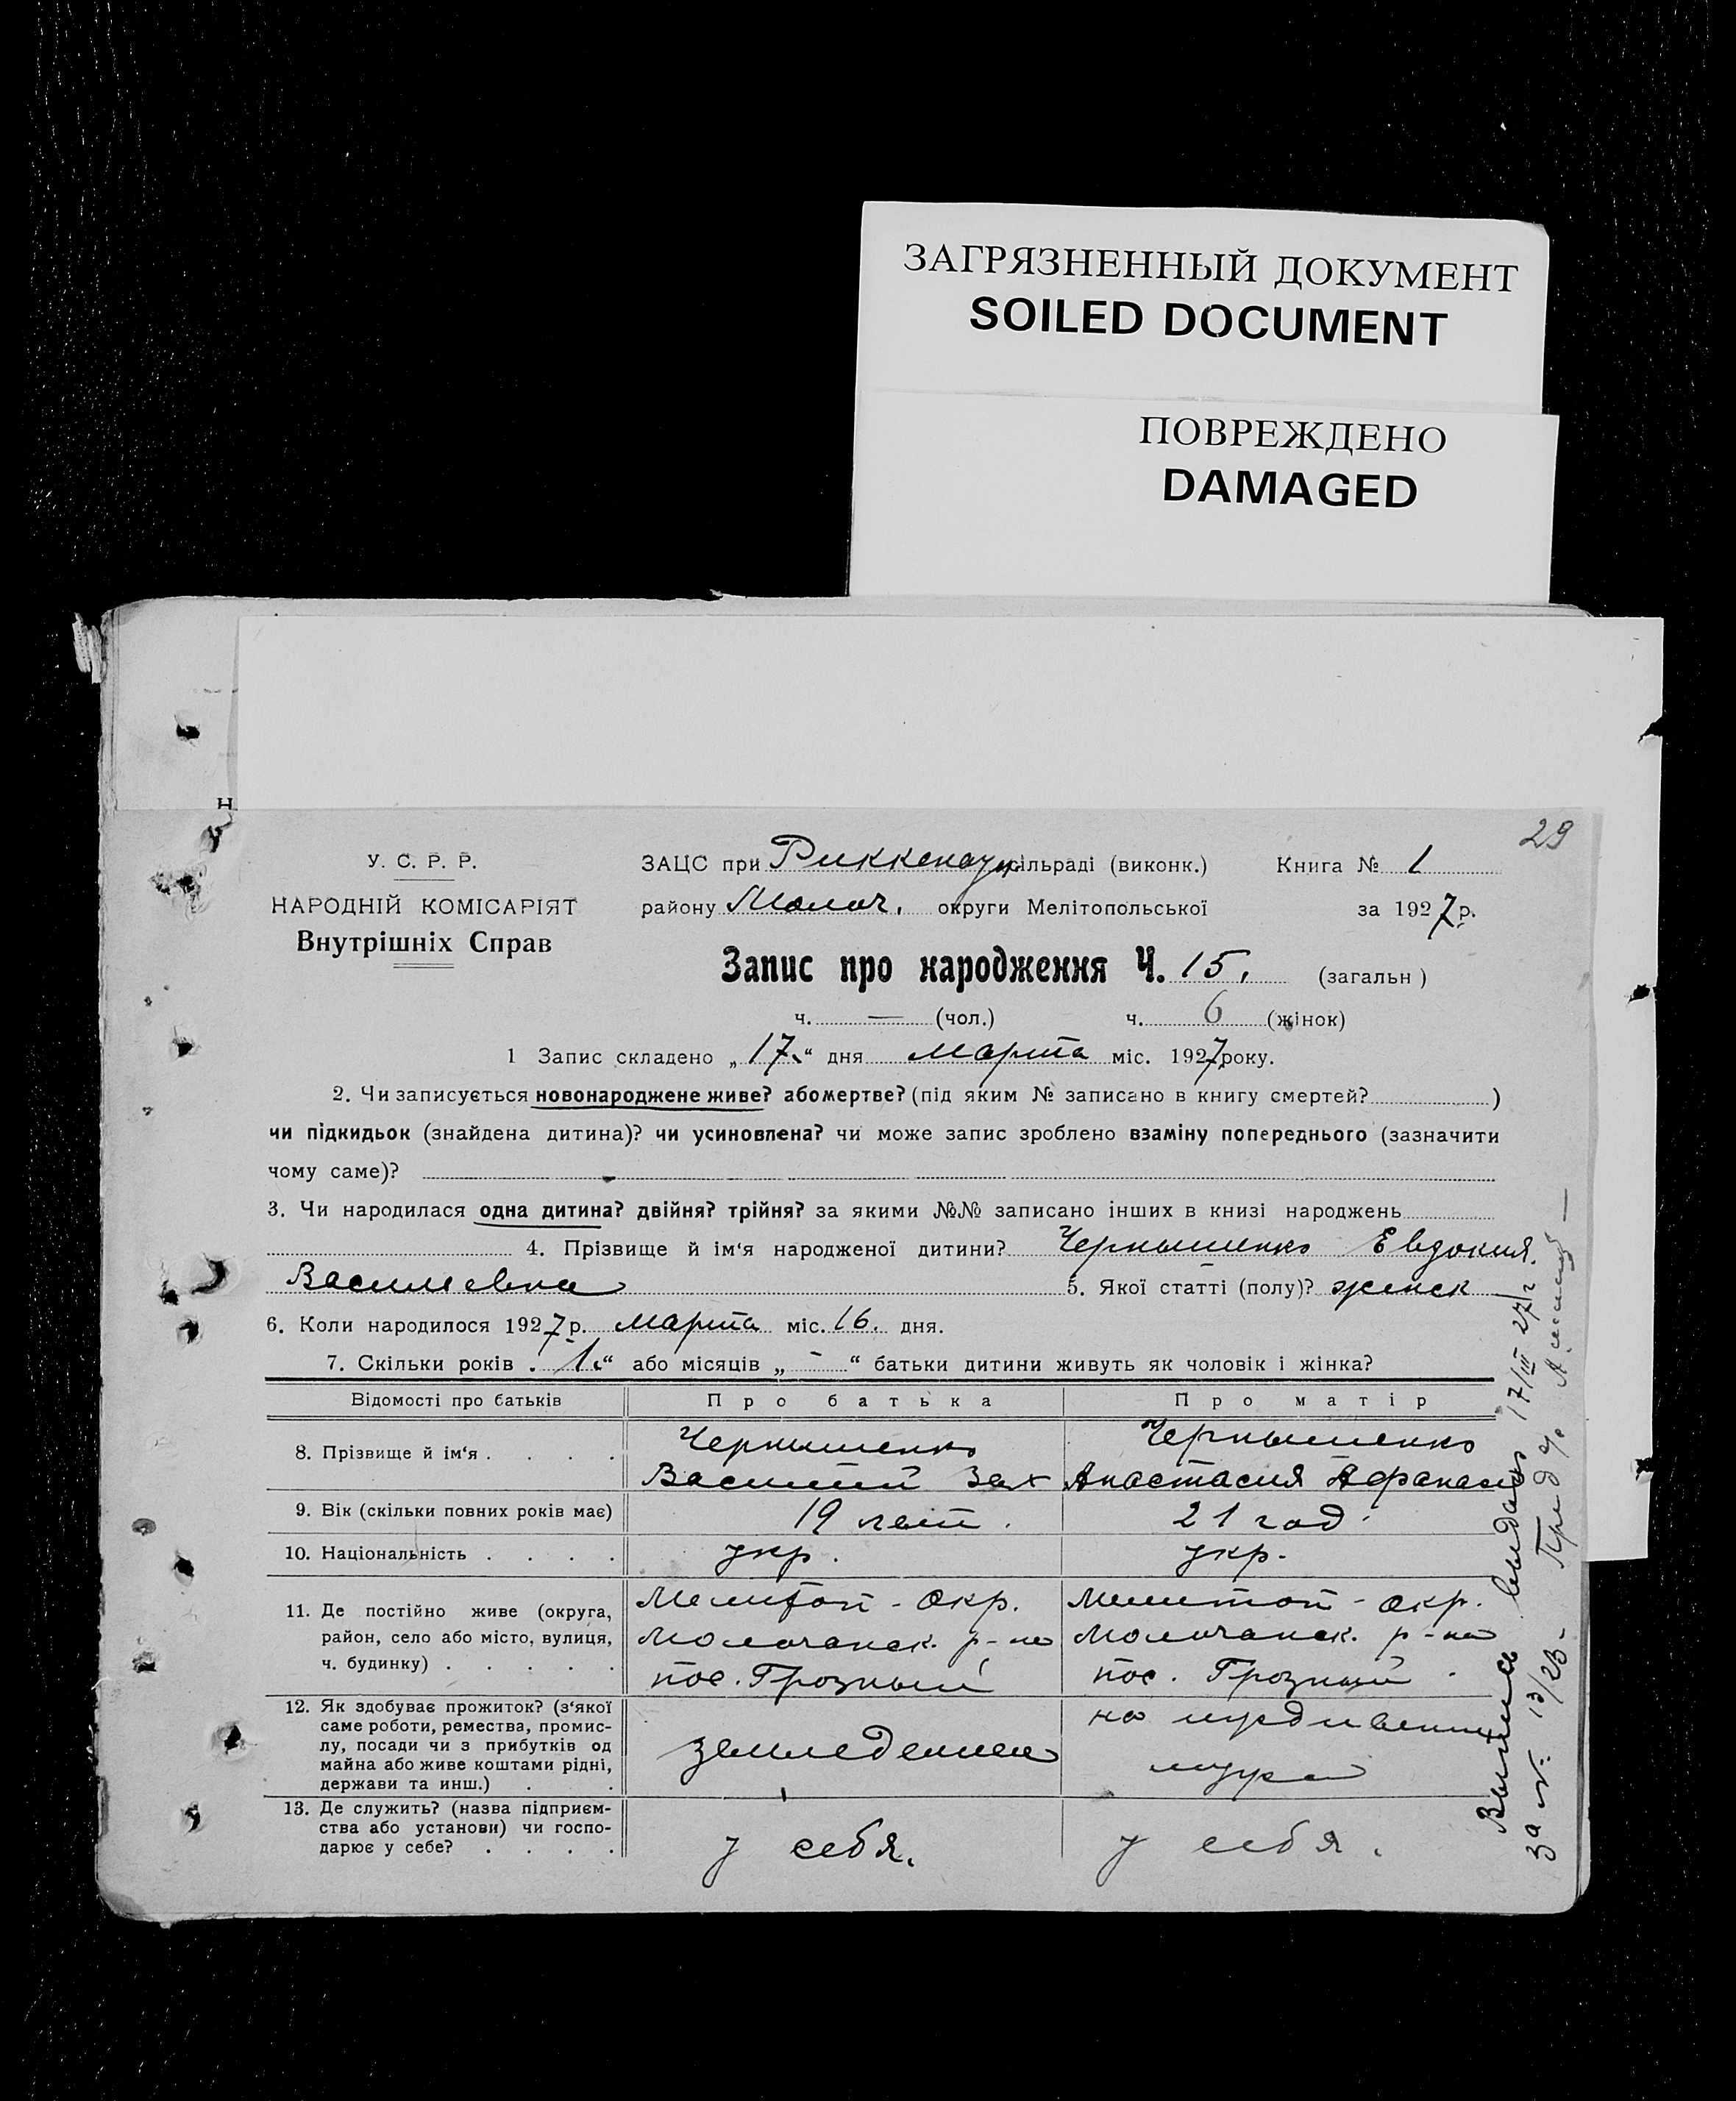 ЗАГРЯЗНЕННЫЙ ДОКУМЕНТ
SOILED DOCUMENT
ПОВРЕЖДЕНО
DAMAGED
Н
29
У. С. Р. Р.
НАРОДНІЙ КОМІСАРІЯТ
Внутрішніх Справ
ЗАЦС при Риккенау сільраді (виконк.) Книга № 1
району Молоч. округи Мелітопольської за 1927 р.
Запис про народження Ч. 15. (загальн )
ч. — (чол.) ч. 6 (жінок)
1 Запис складено „ 17. “ дня Марта міс. 1927 року.
2. Чи записується новонароджене живе? або мертве? (під яким № записано в книгу смертей? )
чи підкидьок (знайдена дитина)? чи усиновлена? чи може запис зроблено взаміну попереднього (зазначити
чому саме)?
3. Чи народилася одна дитина? двійня? трійня? за якими №№ записано інших в книзі народжень
4. Прізвище й ім‘я народженої дитини? Чернышенко Евдокия
Василевна 5. Якої статті (полу)? женск
6. Коли народилося 1927 р. Марта міс. 16. дня.
7. Скільки років „ 1. “ або місяців „ - “ батьки дитини живуть як чоловік і жінка?
Відомості про батьків Про батька Про матір
8. Прізвище й ім‘я . . . . Чернышенко Василий Зах Чернышенко Анастасия Афанас
9. Вік (скільки повних років має) 19 лет. 21 год.
10. Національність . . . . укр. укр.
11. Де постійно живе (округа,
район, село або місто, вулиця,
ч. будинку) . . . . .
Мелитоп - окр.
Молочанск. р-на
пос. Грозный
Мелитоп - окр.
Молочанск. р-на
пос. Грозный
12. Як здобуває прожиток? (з‘якої
саме роботи, ремества, промис-
лу, посади чи з прибутків од
майна або живе коштами рідні,
держави та инш.) . .
земледелием
на иждивении
мужа
13. Де служить? (назва підприєм-
ства або установи) чи госпо-
дарює у себе? . . . .
у себя.
у себя.
Выпись выдана 17/III 27 г.
за №. 13/25 -